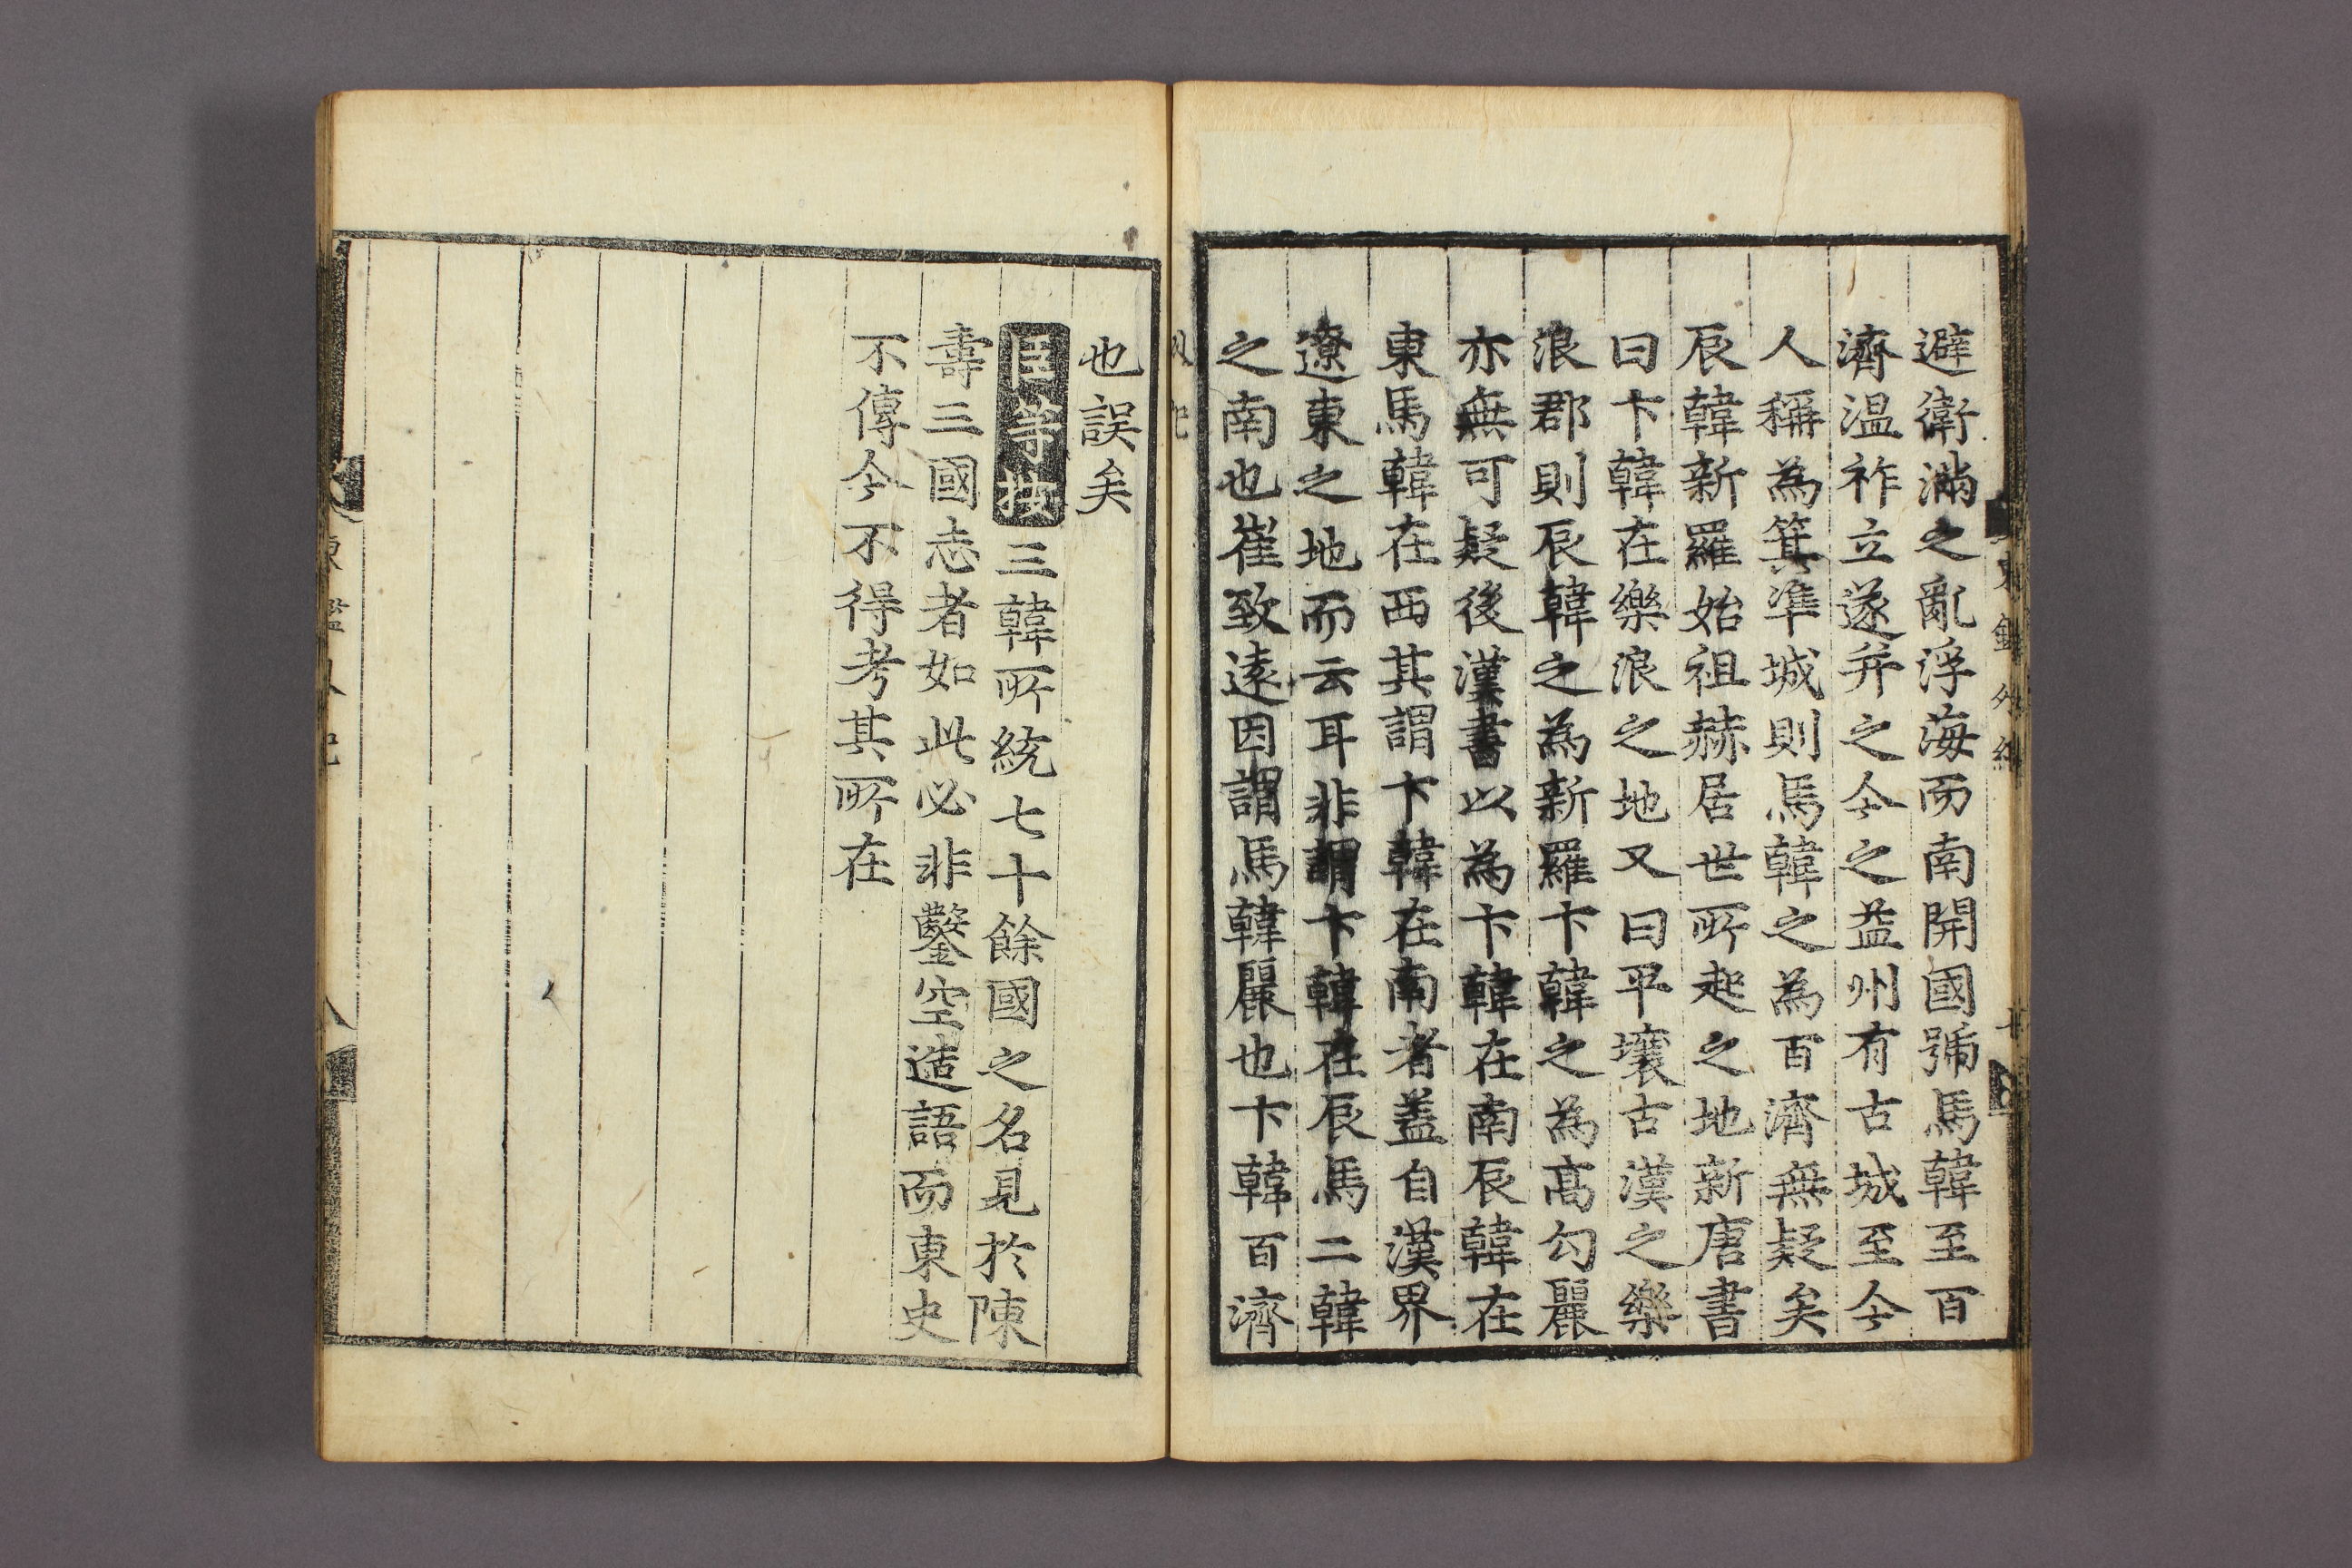 避衛滿之亂浮海而南開國號馬韓至百
濟温祚立遂并之今之益州有古城至今
人稱為箕準城則馬韓之為百濟無疑矣
辰韓新羅始祖赫居世所起之地新唐書
曰卞韓在樂浪之地又曰平壤古漢之樂
浪郡則辰韓之為新羅卞韓之為高勾麗
亦無可疑後漢書以為卞韓在南辰韓在
東馬韓在西其謂卞韓在南者蓋自漢界
遼東之地而云耳非謂卞韓在辰馬二韓
之南也崔致遠因謂馬韓麗也卞韓百濟
也誤矣
臣等按三韓所統七十餘國之名見於陳
壽三國志者如此必非鑿空造語而東史
不傳今不得考其所在